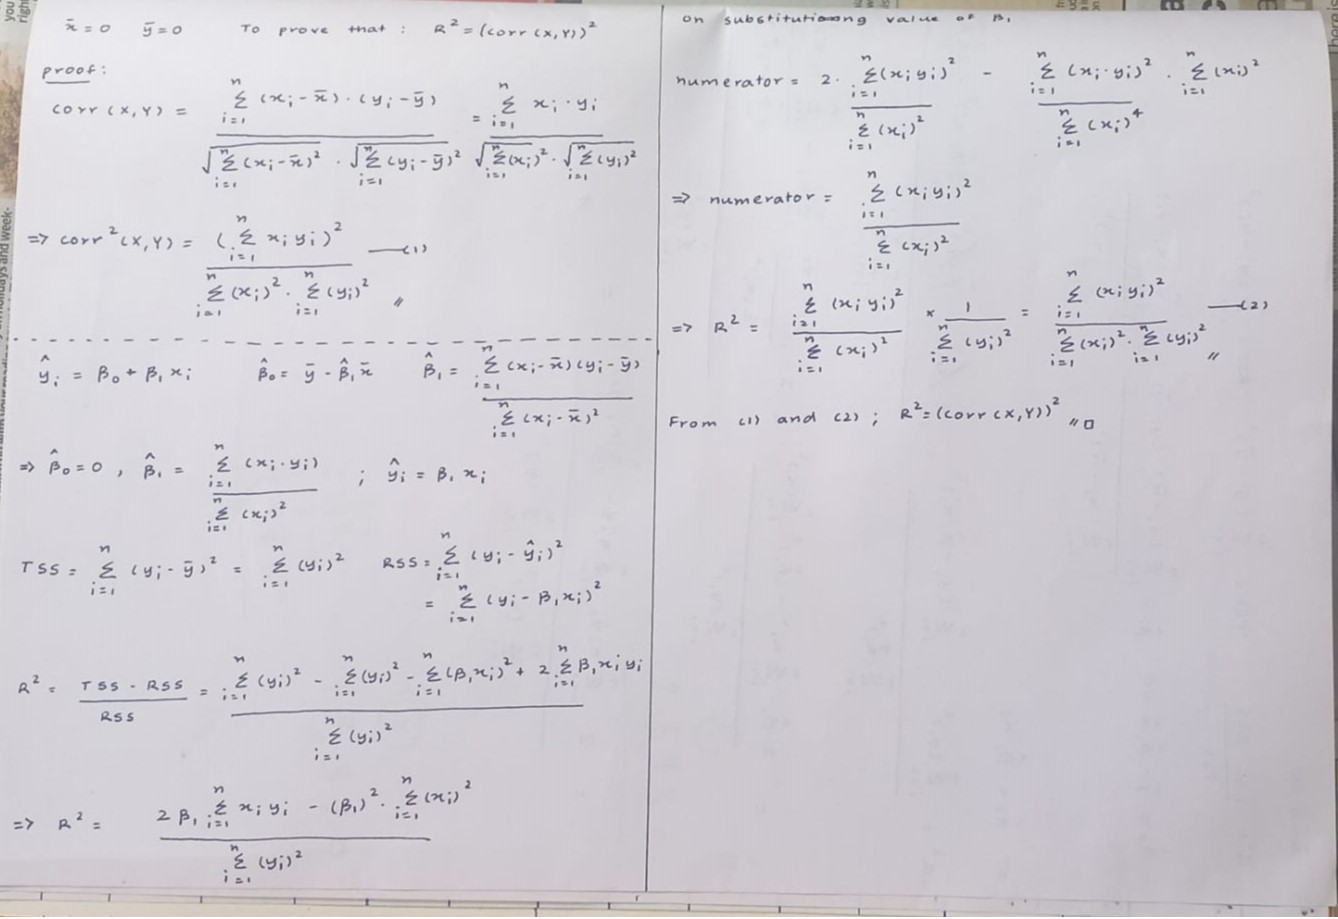 x̄ = 0 ȳ = 0 To prove that : R² = (corr (X,Y))²
proof :
corr (X,Y) = \frac{\sum_{i=1}^{n} (x_i - x̄) · (y_i - ȳ)}{\sqrt{\sum_{i=1}^{n} (x_i - x̄)^2} · \sqrt{\sum_{i=1}^{n} (y_i - ȳ)^2}} = \frac{\sum_{i=1}^{n} x_i · y_i}{\sqrt{\sum_{i=1}^{n} (x_i)^2} · \sqrt{\sum_{i=1}^{n} (y_i)^2}}
=> corr² (X,Y) = \frac{(\sum_{i=1}^{n} x_i y_i)^2}{\sum_{i=1}^{n} (x_i)^2 · \sum_{i=1}^{n} (y_i)^2} —(1) //
ŷ_i = β₀ + β₁ x_i β̂₀ = ȳ - β̂₁ x̄ β̂₁ = \frac{\sum_{i=1}^{n} (x_i - x̄)(y_i - ȳ)}{\sum_{i=1}^{n} (x_i - x̄)^2}
=> β̂₀ = 0 , β̂₁ = \frac{\sum_{i=1}^{n} (x_i · y_i)}{\sum_{i=1}^{n} (x_i)^2} ; ŷ_i = β₁ x_i
TSS = \sum_{i=1}^{n} (y_i - ȳ)^2 = \sum_{i=1}^{n} (y_i)^2 RSS = \sum_{i=1}^{n} (y_i - ŷ_i)^2
= \sum_{i=1}^{n} (y_i - β₁ x_i)^2
R² = \frac{TSS - RSS}{RSS} = \frac{\sum_{i=1}^{n} (y_i)^2 - \sum_{i=1}^{n} (y_i)^2 - \sum_{i=1}^{n} (β₁ x_i)^2 + 2 \sum_{i=1}^{n} β₁ x_i y_i}{\sum_{i=1}^{n} (y_i)^2}
=> R² = \frac{2 β₁ \sum_{i=1}^{n} x_i y_i - (β₁)^2 · \sum_{i=1}^{n} (x_i)^2}{\sum_{i=1}^{n} (y_i)^2}
on substituting value of β₁
numerator = 2 · \frac{\sum_{i=1}^{n} (x_i y_i)^2}{\sum_{i=1}^{n} (x_i)^2} - \frac{\sum_{i=1}^{n} (x_i · y_i)^2}{\sum_{i=1}^{n} (x_i)^4} · \sum_{i=1}^{n} (x_i)^2
=> numerator = \frac{\sum_{i=1}^{n} (x_i y_i)^2}{\sum_{i=1}^{n} (x_i)^2}
=> R² = \frac{\sum_{i=1}^{n} (x_i y_i)^2}{\sum_{i=1}^{n} (x_i)^2} × \frac{1}{\sum_{i=1}^{n} (y_i)^2} = \frac{\sum_{i=1}^{n} (x_i y_i)^2}{\sum_{i=1}^{n} (x_i)^2 · \sum_{i=1}^{n} (y_i)^2} —(2) //
From (1) and (2) ; R² = (corr (X,Y))² // □